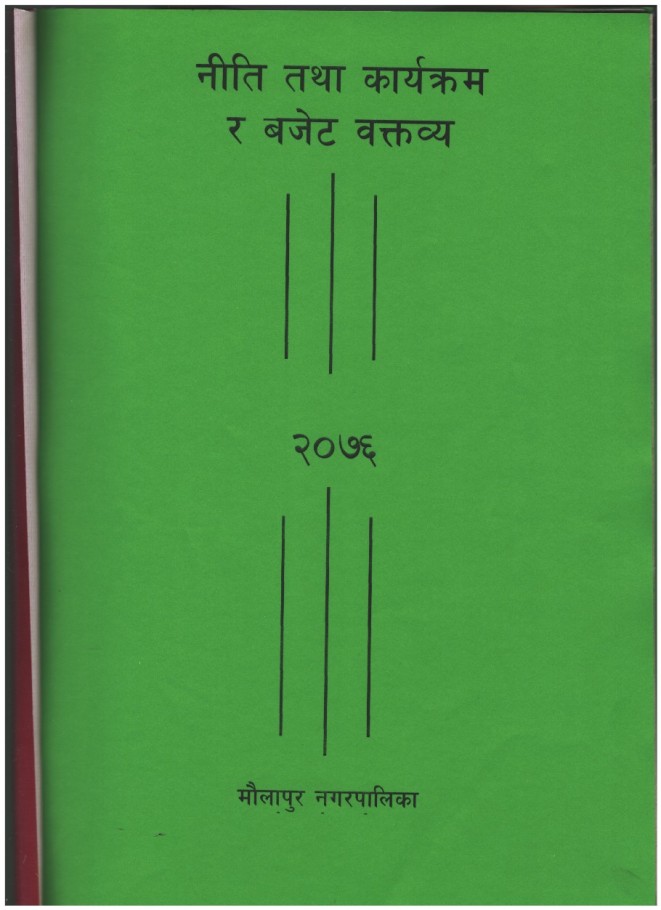 नीति तथा कार्यक्रम
र बजेट वक्तव्य
२०७६
मौलापुर नगरपालिका